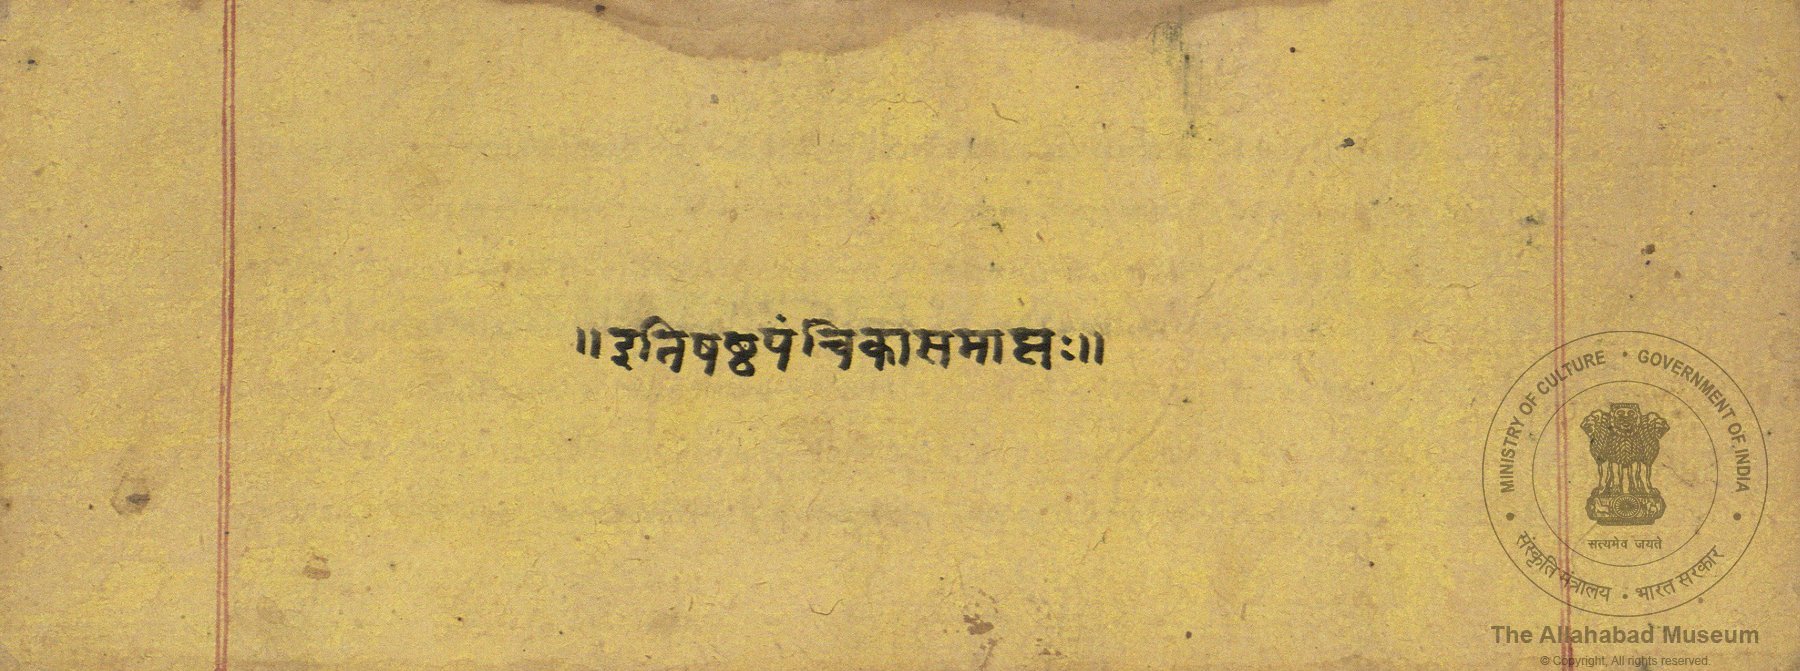 ॥इतिषष्ठपंचिकासमाप्तः॥
MINISTRY OF CULTURE • GOVERNMENT OF INDIA
सत्यमेव जयते
संस्कृति मंत्रालय • भारत सरकार
The Allahabad Museum
© Copyright, All rights reserved.